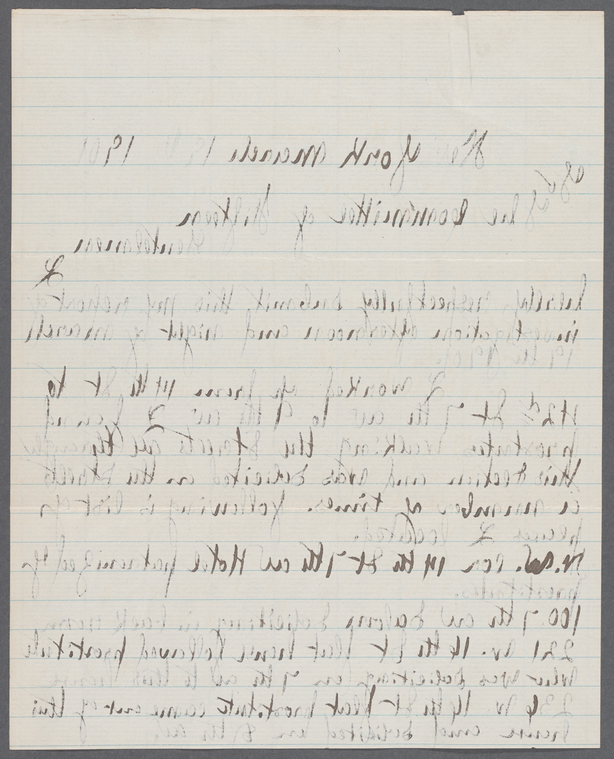 New York March 19 1901
The Committee of Fifteen
Gentlemen
I
hereby respectfully submit this my report of
investigation afternoon and night of March
19th 1901.
I worked up from 14th St to
42d St 7th av to 9th av I found
prostitutes walking the streets all through
this section and was solicited on the streets
a number of times. following is list of
places I located.
N.W. cor 14th St 7th av Hotel patronized by
prostitutes.
100. 7th av Saloon soliciting in back room
221 W. 16th St flat house followed prostitute
who was soliciting on 7th av to this house
236 W 16th St flat prostitute came out of this
house and solicited on 8th av.